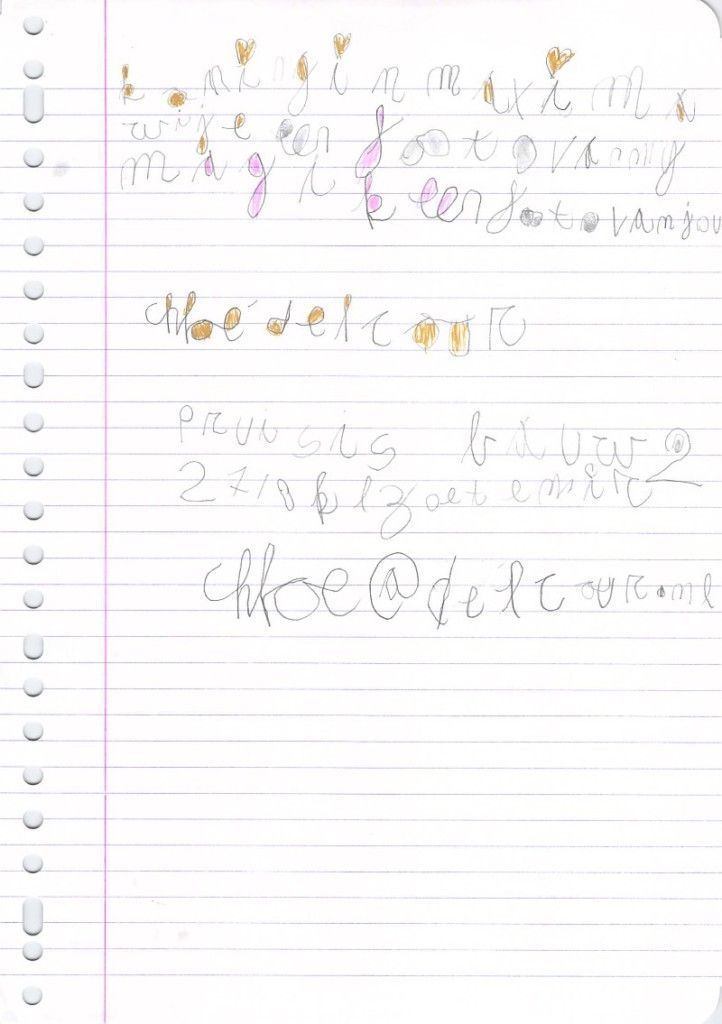 koningin maxima
wij e een foto van mij
mag ik een foto van jou
chloé delcour
pruisisbauw 2
2718 kl zoetemeir
chloe@delcour.nl